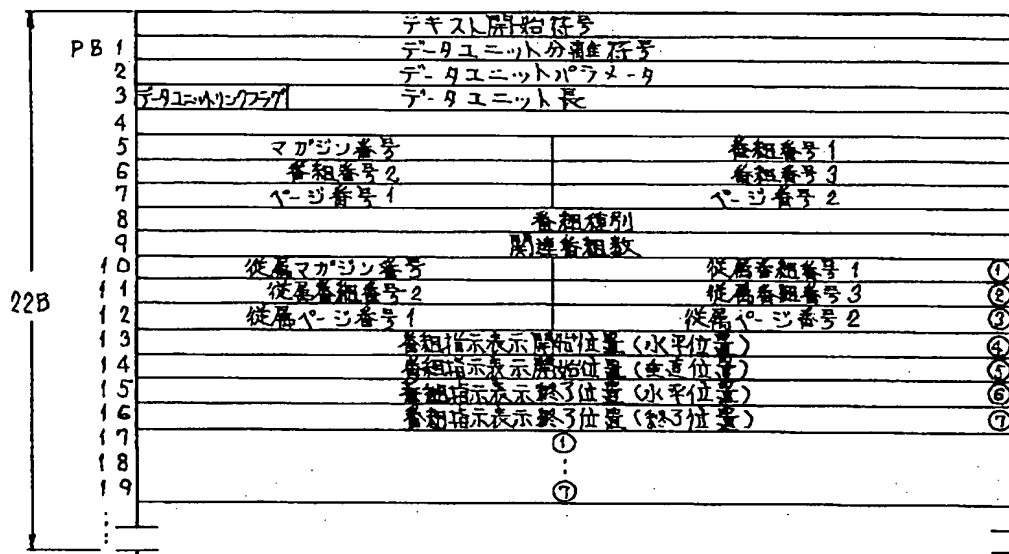 テキスト開始符号
PB 1 データユニット分離符号
2 データユニットパラメータ
3 データユニットリンクフラグ データユニット長
4
5 マガジン番号 番組番号1
6 番組番号2 番組番号3
7 ページ番号1 ページ番号2
8 番組種別
9 関連番組数
10 従属マガジン番号 従属番組番号1 ①
11 従属番組番号2 従属番組番号3 ②
22B
12 従属ページ番号1 従属ページ番号2 ③
13 番組指示表示開始位置(水平位置) ④
14 番組指示表示開始位置(垂直位置) ⑤
15 番組指示表示終了位置(水平位置) ⑥
16 番組指示表示終了位置(終了位置) ⑦
17 ①
18 ⋮
19 ⑦
⋮